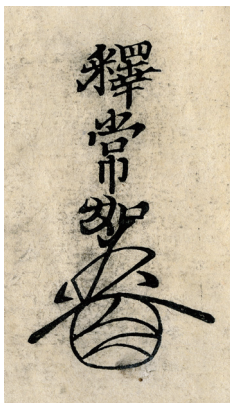 釋常如